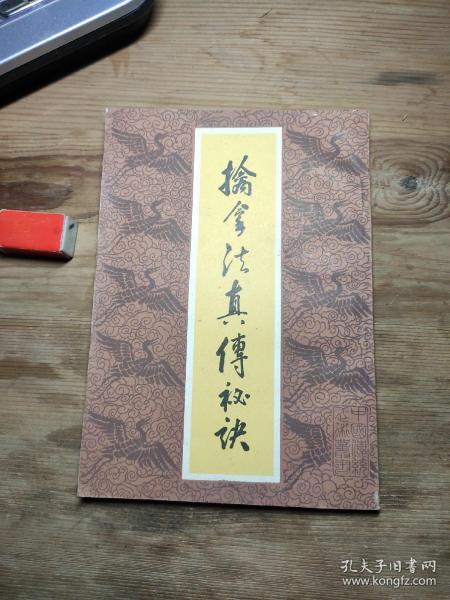 擒拿法真傳秘訣
孔夫子旧书网
www.kongfz.com